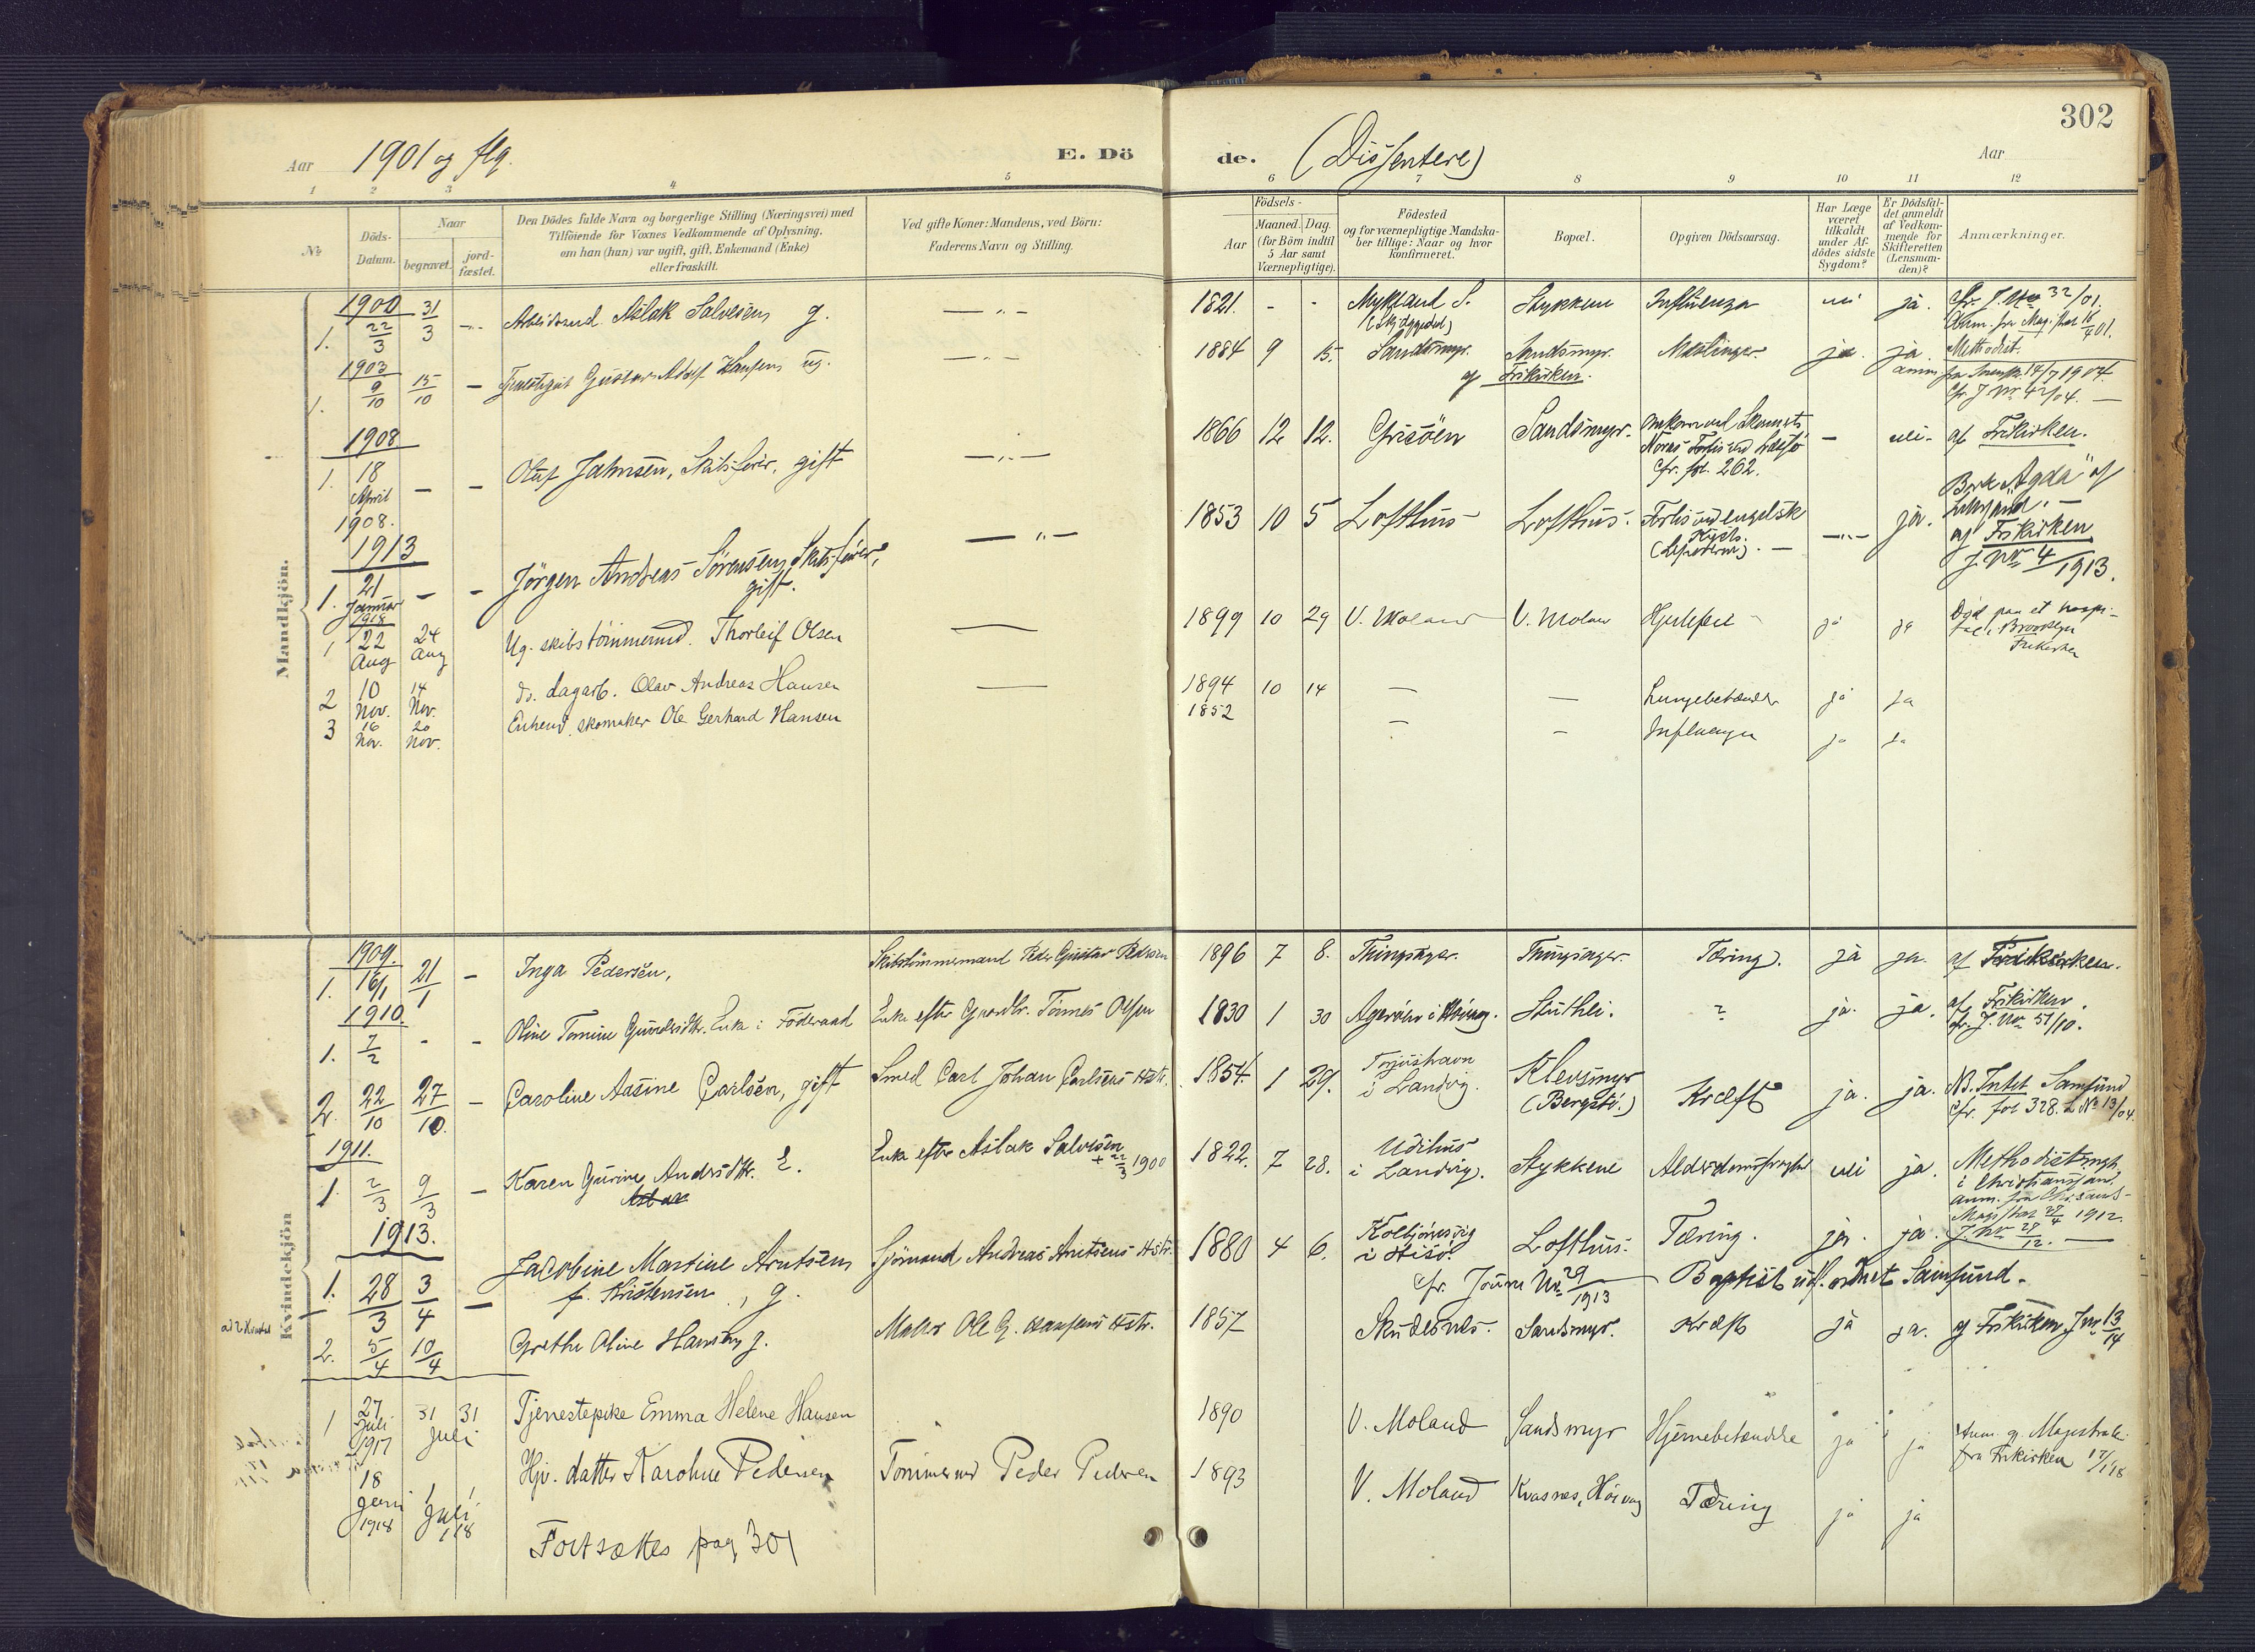 302
Aar 1901 og flg. E. Dö de. (Dissentere) Aar
1 2 3 4 5 6 7 8 9 10 11 12
No
Döds-Datum.
Naar
begravet.
jord-fæstet.
Den Dödes fulde Navn og borgerlige Stilling (Næringsvei) med
Tilföiende for Voxnes Vedkommende af Oplysning,
om han (hun) var ugift, gift, Enkemand (Enke)
eller fraskilt.
Ved gifte Koner: Mandens, ved Börn:
Faderens Navn og Stilling.
Födsels-
Aar
Maaned. Dag.
(for Börn indtil
5 Aar samt
Værnepligtige).
Födested
og for værnepligtige Mandska-
ber tillige: Naar og hvor
konfirmeret.
Bopæl.
Opgiven Dödsaarsag.
Har Læge
været
tilkaldt
under Af-
dödes sidste
Sygdom?
Er Dödsfal-
det anmeldt
af Vedkom-
mende for
Skifteretten
(Lensman-
den)?
Anmærkninger.
Mandkjön.
1900
1. 22/3 31/3 Arbeidsmd. Aslak Salvesen g. 1821. - - Mykland S. Stykkene Influenza nei ja. cfr. J. No 32/01.
Methodist.
1903
1. 9/10 15/10 - Gustav Adolf Hansen ug. 1884 9 15. Sandsmyr. Sandsmyr. Meslinger ja. ja.
af Frikirken. 14/7 1904.
cfr. J No 42/04.
1908
1. 18 April 1908. - - Olaf Jahnsen, Skibsförer, gift 1866 12 12. Grisöen Sandsmyr. omkommed Skonnert
cfr. fol. 262. - nei- af Frikirken.
1913
1. 21 Januar - - Jörgen Andreas Sörensen, Skibsförer,
gift. 1853 10 5 Lofthus Lofthus. Forlis ved engelsk
Kyst. ja. Bark "Agda" af
Lillesand.
af Frikirken
J No 4/1913.
1918
1 22 Aug 24 Aug Ug. skibstömmermd. Thorleif Olsen 1899 10 29 V. Moland V. Moland Hjertefeil ja ja Död paa et hospi-
tal i Brooklyn
Frikirken
2 10 Nov. 14 Nov. do. dagarb. Olav Andreas Hansen 1894 10 14 Lungebetændelse ja ja
3 16 Nov. 20 Nov. Enkemd. skomaker Ole Gerhard Hansen 1852 Influenza ja ja
Kvindekjön
1909.
1. 16/1 21/1 - Inga Pedersen, Skibstömmermand Peder Gustav Pedersen 1896 7 8. Thingsager. Thingsager. Tæring. ja ja. af Frikirken.
1910.
1. 7/2 - - Oline Tomine Gundersdtr. Enke i Föderaad Enke efter Gaardbr. Tönnes Olsen 1830 1 30 Ageröen i Höivag. Stuthei. ? ja. ja. af Frikirken.
cfr. J. No 51/10.
2. 22/10 27/10. - Caroline Aasine Carlsen, gift Smed Carl Johan Carlsens Hstr. 1854. 1 29. Torjushavn
i Landvig. Klevsmyr
(Bergstö.) Kræft ja. ja. NB. Intet Samfund
cfr. fol 328. L No 13/04.
1911.
1. 2/3 9/3 - Karen Gurine Andersdtr. E. Enke efter Aslak Salvesen
+ 22/3 1900 1822. 7 28. Udihus
i Landvig. Stykkene Alderdomssvaghed nei ja. Methodistmgh.
i Christianssand.
anm. fra Chr.sands-
Magistrat 27/4 1912.
1913.
1. 28/3 3/4 - Jacobine Martine Arntsen
f. Kristensen, g. Sjömand Andreas Arntsens Hstr. 1880 4 6. Kolbjörnsvig
i Hisö. Lofthus. Tæring. ja. ja.
cfr. Journ No 29/1913 - Baptist udf. ordnet Samfund.
2. 5/4 10/4 Grethe Oline Hansen g. Maler Ole G. Hansens Hstr. 1857 Skudesnes. Sandsmyr. Kræft ja ja. af Frikirken J No 13/14
1 27 Juli 1917 31 Juli 31 Tjenestepike Emma Helene Hansen 1890 V. Moland Sandsmyr Hjernebetændelse ja ja Anm. g. Magistrat
fra Frikirken
18 Juni 1918 1 Juli 1 Hjv. datter Karoline Pedersen Tömmermd Peder Pedersen 1893 V. Moland Kvasnes, Höivag Tæring ja ja
Fortsættes pag 301